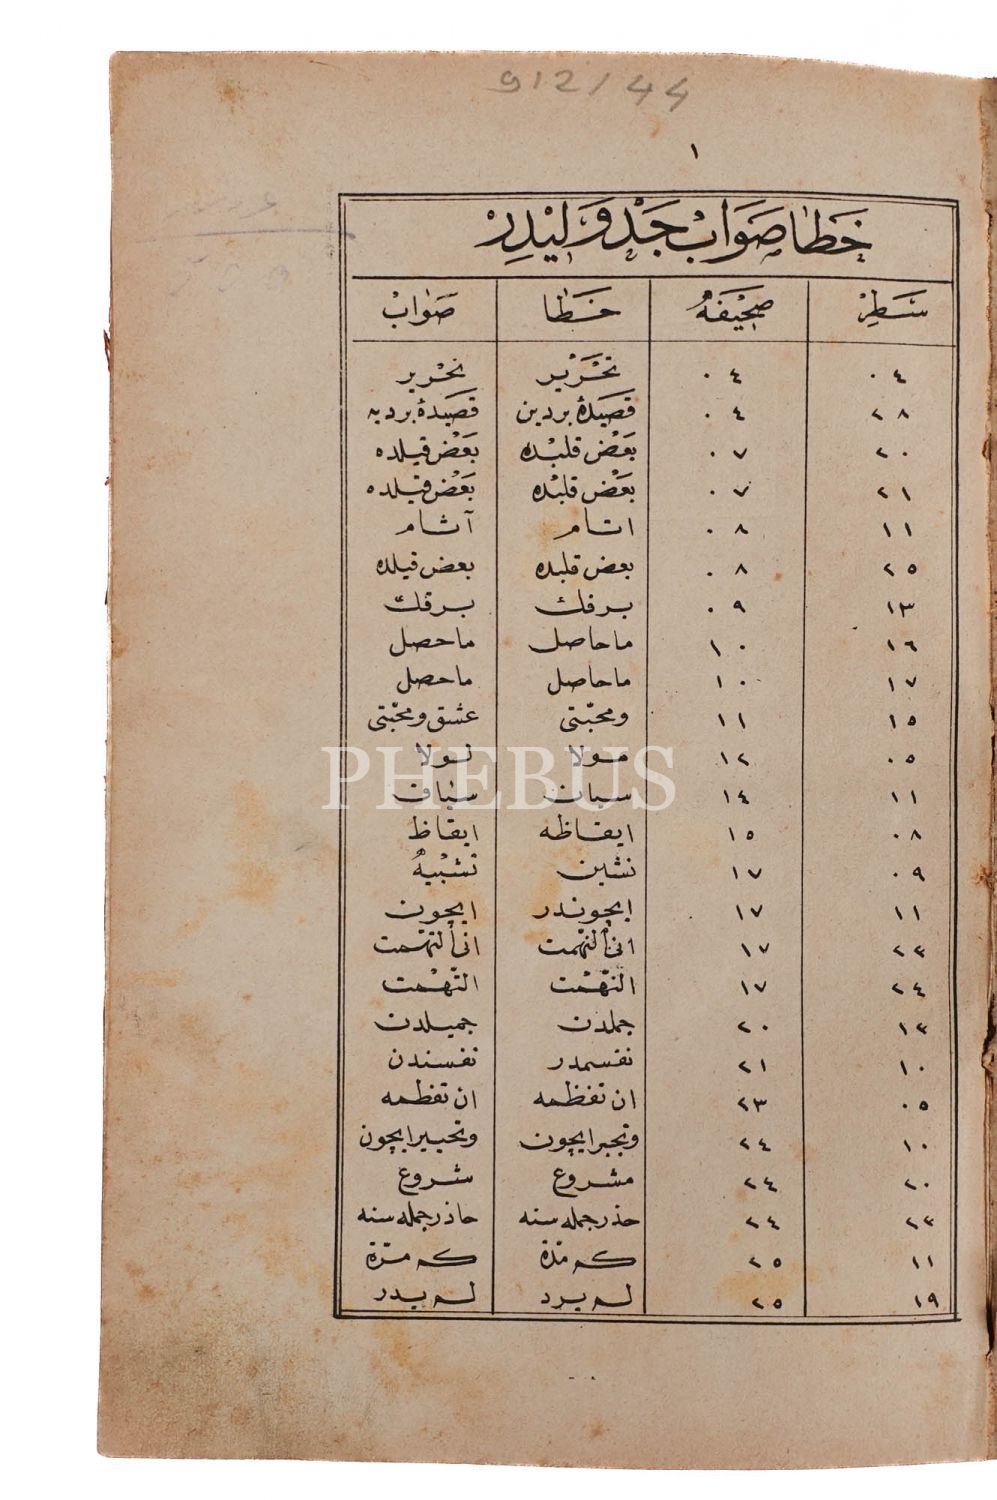 912/44
١
خَطَا صَوَابْ جَدْوَلِيدِرْ
سَطِرْ صَحِيفَهُ خَطَا صَوَابْ
٠٤ ٠٤ تَحْرَيْر نحْرير
٢٨ ٠٤ قصيدهٔ بردين قصيدهٔ برديه
٢٠ ٠٧ بَعْض قلبْده بَعْض قيلده
٢١ ٠٧ بَعْض قلبْده بَعْض قيلده
١١ ٠٨ اتام آثام
٢٥ ٠٨ بعض قلبده بعض قيلده
١٣ ٠٩ برفك برقك
١٦ ١٠ ماحاصل ماحصل
١٧ ١٠ ماحاصل ماحصل
١٥ ١١ ومحبّتى عشق ومحبّتى
٠٥ ١٢ مولا لولا
١١ ١٤
٠٨ ١٥ ايقاظه ايقاظ
٠٩ ١٧ نشين تشبْيهُ
١١ ١٧ ايچوندر ايچون
٢٣ ١٧ انى ألنهمت انى ألتهمت
٢٤ ١٧ النّهْمت التّهْمت
١٣ ٢٠ جملدن جميلدن
١٠ ٢١ نفسمدر نفسندن
٠٥ ٢٣ ان تفظمه ان تفطمه
١٠ ٢٤ وتجبر ايچون وتحيير ايچون
٢٠ ٢٤ مشروع شروع
٢٣ ٢٤ حذر جمله سنه حاذر جمله سنه
١١ ٢٥ كه مدّة كه مرّة
١٩ ٢٥ لم يرد لم يدر
PHEBUS